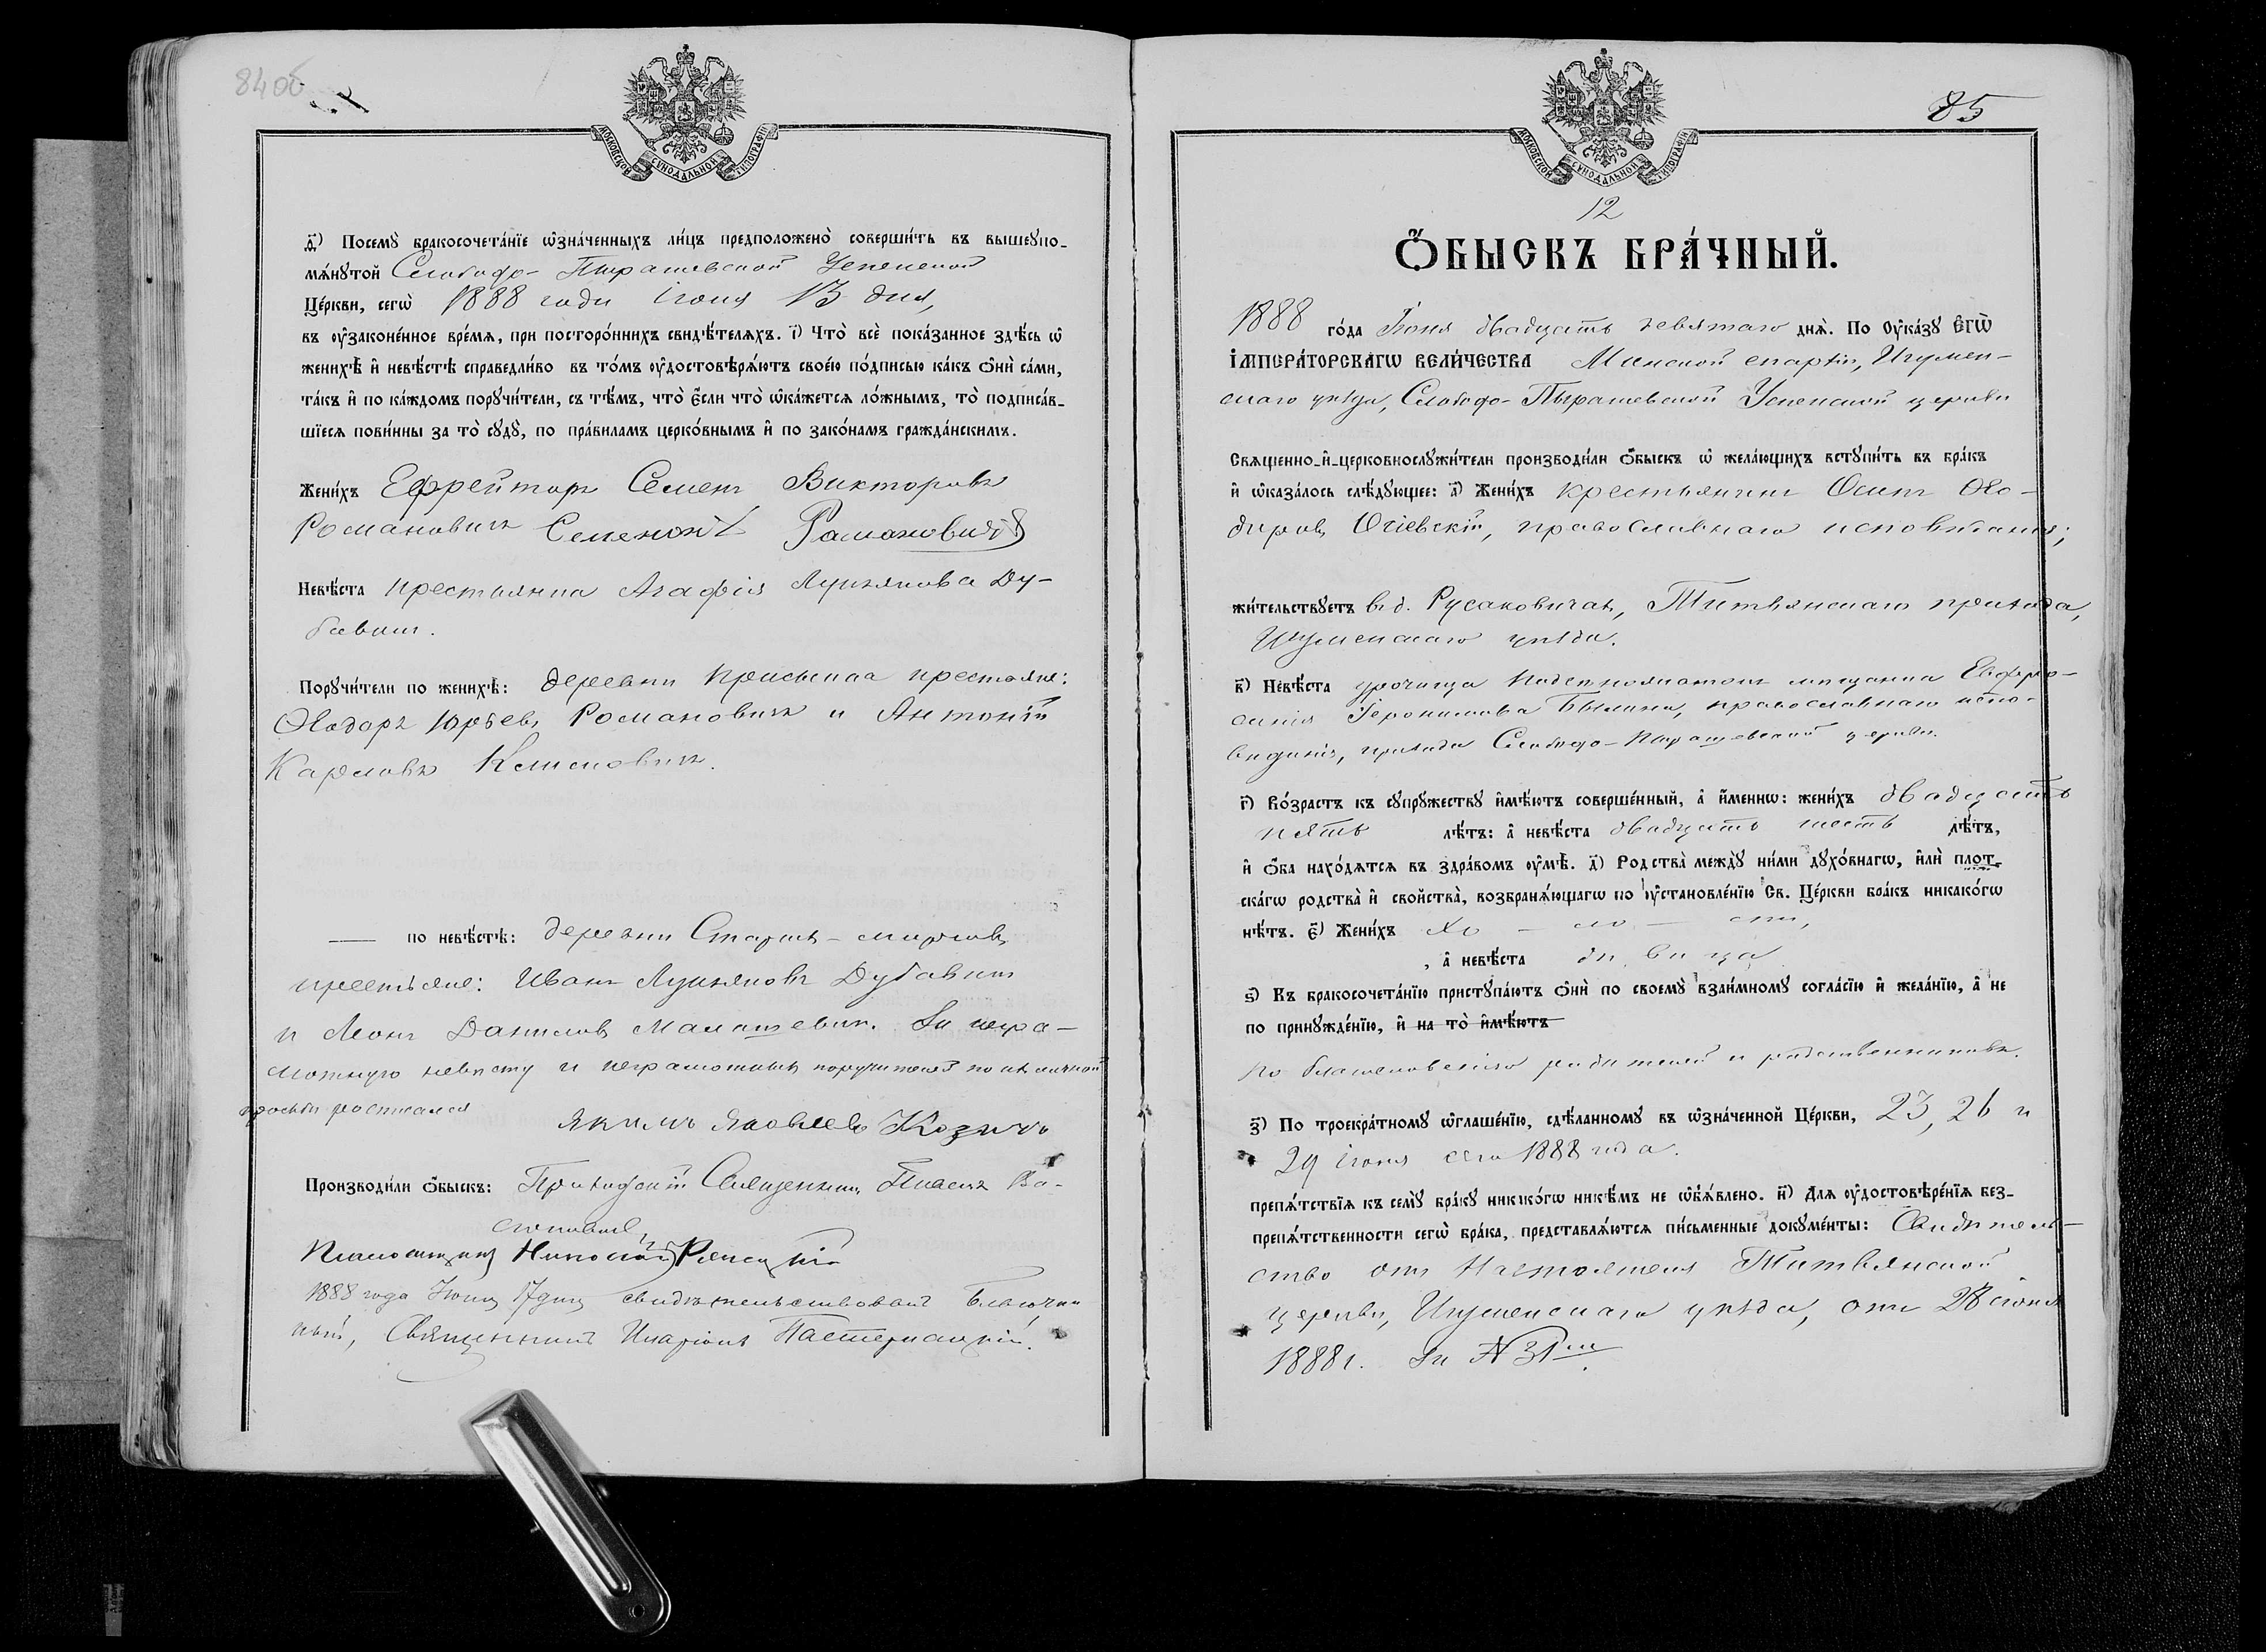 84 об
МОСКОВСКОЙ СѴНОДАЛЬНОЙ ТИПОГРАФІИ
д҃і) Посемꙋ̀ бракосочета́нїе ѡ҆зна́ченныхъ ли́цъ предположено̀ соверши́ть въ вышеꙋпо-
мѧ́нꙋтой Слободо-Пырашевской Успенской
Це́ркви, сегѡ̀ 1888 года іюня 13 дня,
въ ᲂу҆законе́нное вре́мѧ, при посторо́ннихъ свидѣ́телѧхъ. і҃) Что̀ всѐ пока́занное здѣ́сь ѡ҆
женихѣ̀ и҆ невѣ́стѣ справедли́во въ то́мъ ᲂу҆достовѣрѧ́ютъ свое́ю по́дписью ка́къ ѻ҆нѝ са́ми,
та́къ и҆ по ка́ждомъ порꙋчи́тели, съ тѣ́мъ, что̀ є҆́сли что̀ ѡ҆ка́жетсѧ ло́жнымъ, то̀ подписа́в-
шїесѧ пови́нны за то̀ сꙋдꙋ̀, по пра́виламъ церко́внымъ и҆ по зако́намъ гражда́нскимъ.
Жени́хъ Ефрейторъ Семенъ Викторовъ
Романовичъ Семенонъ Рамановичъ
Невѣ́ста крестьянка Агафія Лукьянова Ду-
бавикъ.
Порꙋчи́тели по женихѣ̀: деревни крестьяне:
Ѳеодоръ Юрьевъ Романовичъ и Антоній
Карловъ Климовичъ.
— по невѣ́стѣ: деревни
крестьяне: Иванъ Лукьяновъ Дубавикъ
и Леонъ Даниловъ Малашевичъ. За негра-
мотную невѣсту и неграмотныхъ поручителей по ихъ личной
просьбѣ росписался
Якимъ Яковлевъ Козичъ
Производи́ли ѻ҆́быскъ: Приходскій Священникъ
Псаломщикъ Николай
1888 года Іюня 17 дня свидѣтельствовалъ Благочин-
ный, Священникъ Иларіонъ Пастернацкій.
85
МОСКОВСКОЙ СѴНОДАЛЬНОЙ ТИПОГРАФІИ
12
Ѻ҆́БЫСКЪ БРА́ЧНЫЙ.
1888 го́да Іюня двадцать девятаго днѧ̀. По Оу҆ка́зꙋ Є҆гѡ̀
І҆МПЕРА́ТОРСКАГѠ ВЕЛИ́ЧЕСТВА Минской епархіи, Игумен-
скаго уѣзда, Слободо-Пырашевской Успенской церкви
Свѧщенно-и҆-церковнослꙋжи́тели производи́ли ѻ҆́быскъ ѡ҆ жела́ющихъ встꙋпи́ть въ бра́къ
и҆ ѡ҆каза́лось слѣ́дꙋющее: а҃) Жени́хъ крестьянинъ Осипъ Ѳео-
доровъ православнаго исповѣданія;
жи́тельствꙋетъ въ д. Русаковичахъ, Титвянскаго прихода,
Игуменскаго уѣзда.
в҃) Невѣ́ста урочища мѣщанка Евфро-
синія Іеронимова православнаго испо-
вѣданія, прихода Слободо-Пырашевской церкви.
г҃) Во́зрастъ къ сꙋпрꙋ́жествꙋ и҆мѣ́ютъ соверше́нный, а҆ и҆́меннѡ: жени́хъ двадцать
пять лѣ́тъ: а҆ невѣ́ста двадцать шесть лѣ́тъ,
и҆ ѻ҆́ба нахо́дѧтсѧ въ здра́вомъ ᲂу҆мѣ̀. д҃) Родства̀ междꙋ̀ ни́ми дꙋхо́внагѡ, и҆лѝ плот-
ска́гѡ родства̀ и҆ свойства̀, возбранѧ́ющагѡ по ᲂу҆становле́нїю Св. Це́ркви бра́къ никако́гѡ
нѣ́тъ. є҃) Жени́хъ хо - ло - стъ,
, а҆ невѣ́ста дѣвица
ѕ҃) Къ бракосочета́нїю пристꙋпа́ютъ ѻ҆нѝ по своемꙋ̀ взаи́мномꙋ согла́сїю и҆ жела́нїю, а҆ не
по принꙋжде́нїю, и҆ на то̀ и҆мѣ́ютъ
по благословенію родителей и родственниковъ.
з҃) По троекра́тномꙋ ѡ҆глаше́нїю, сдѣ́ланномꙋ въ ѡ҆зна́ченной Це́ркви, 23, 26 и
29 іюня сего 1888 года.
препѧ́тствїѧ къ семꙋ̀ бра́кꙋ никако́гѡ никѣ́мъ не ѡ҆б̾ѧ́влено. и҃) Длѧ ᲂу҆достовѣре́нїѧ без-
препѧ́тственности сегѡ̀ бра́ка, представлѧ́ютсѧ пи́сьменные докꙋме́нты: Свидѣтель-
ство отъ Настоятеля Титвянской
церкви, Игуменскаго уѣзда, отъ 28 іюня
1888 г. За № 31мъ.